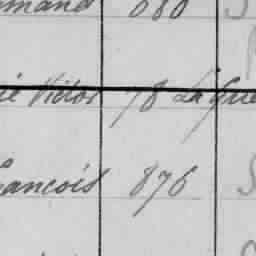 mand 680
ié Victor 78 La Gue
ancois 876